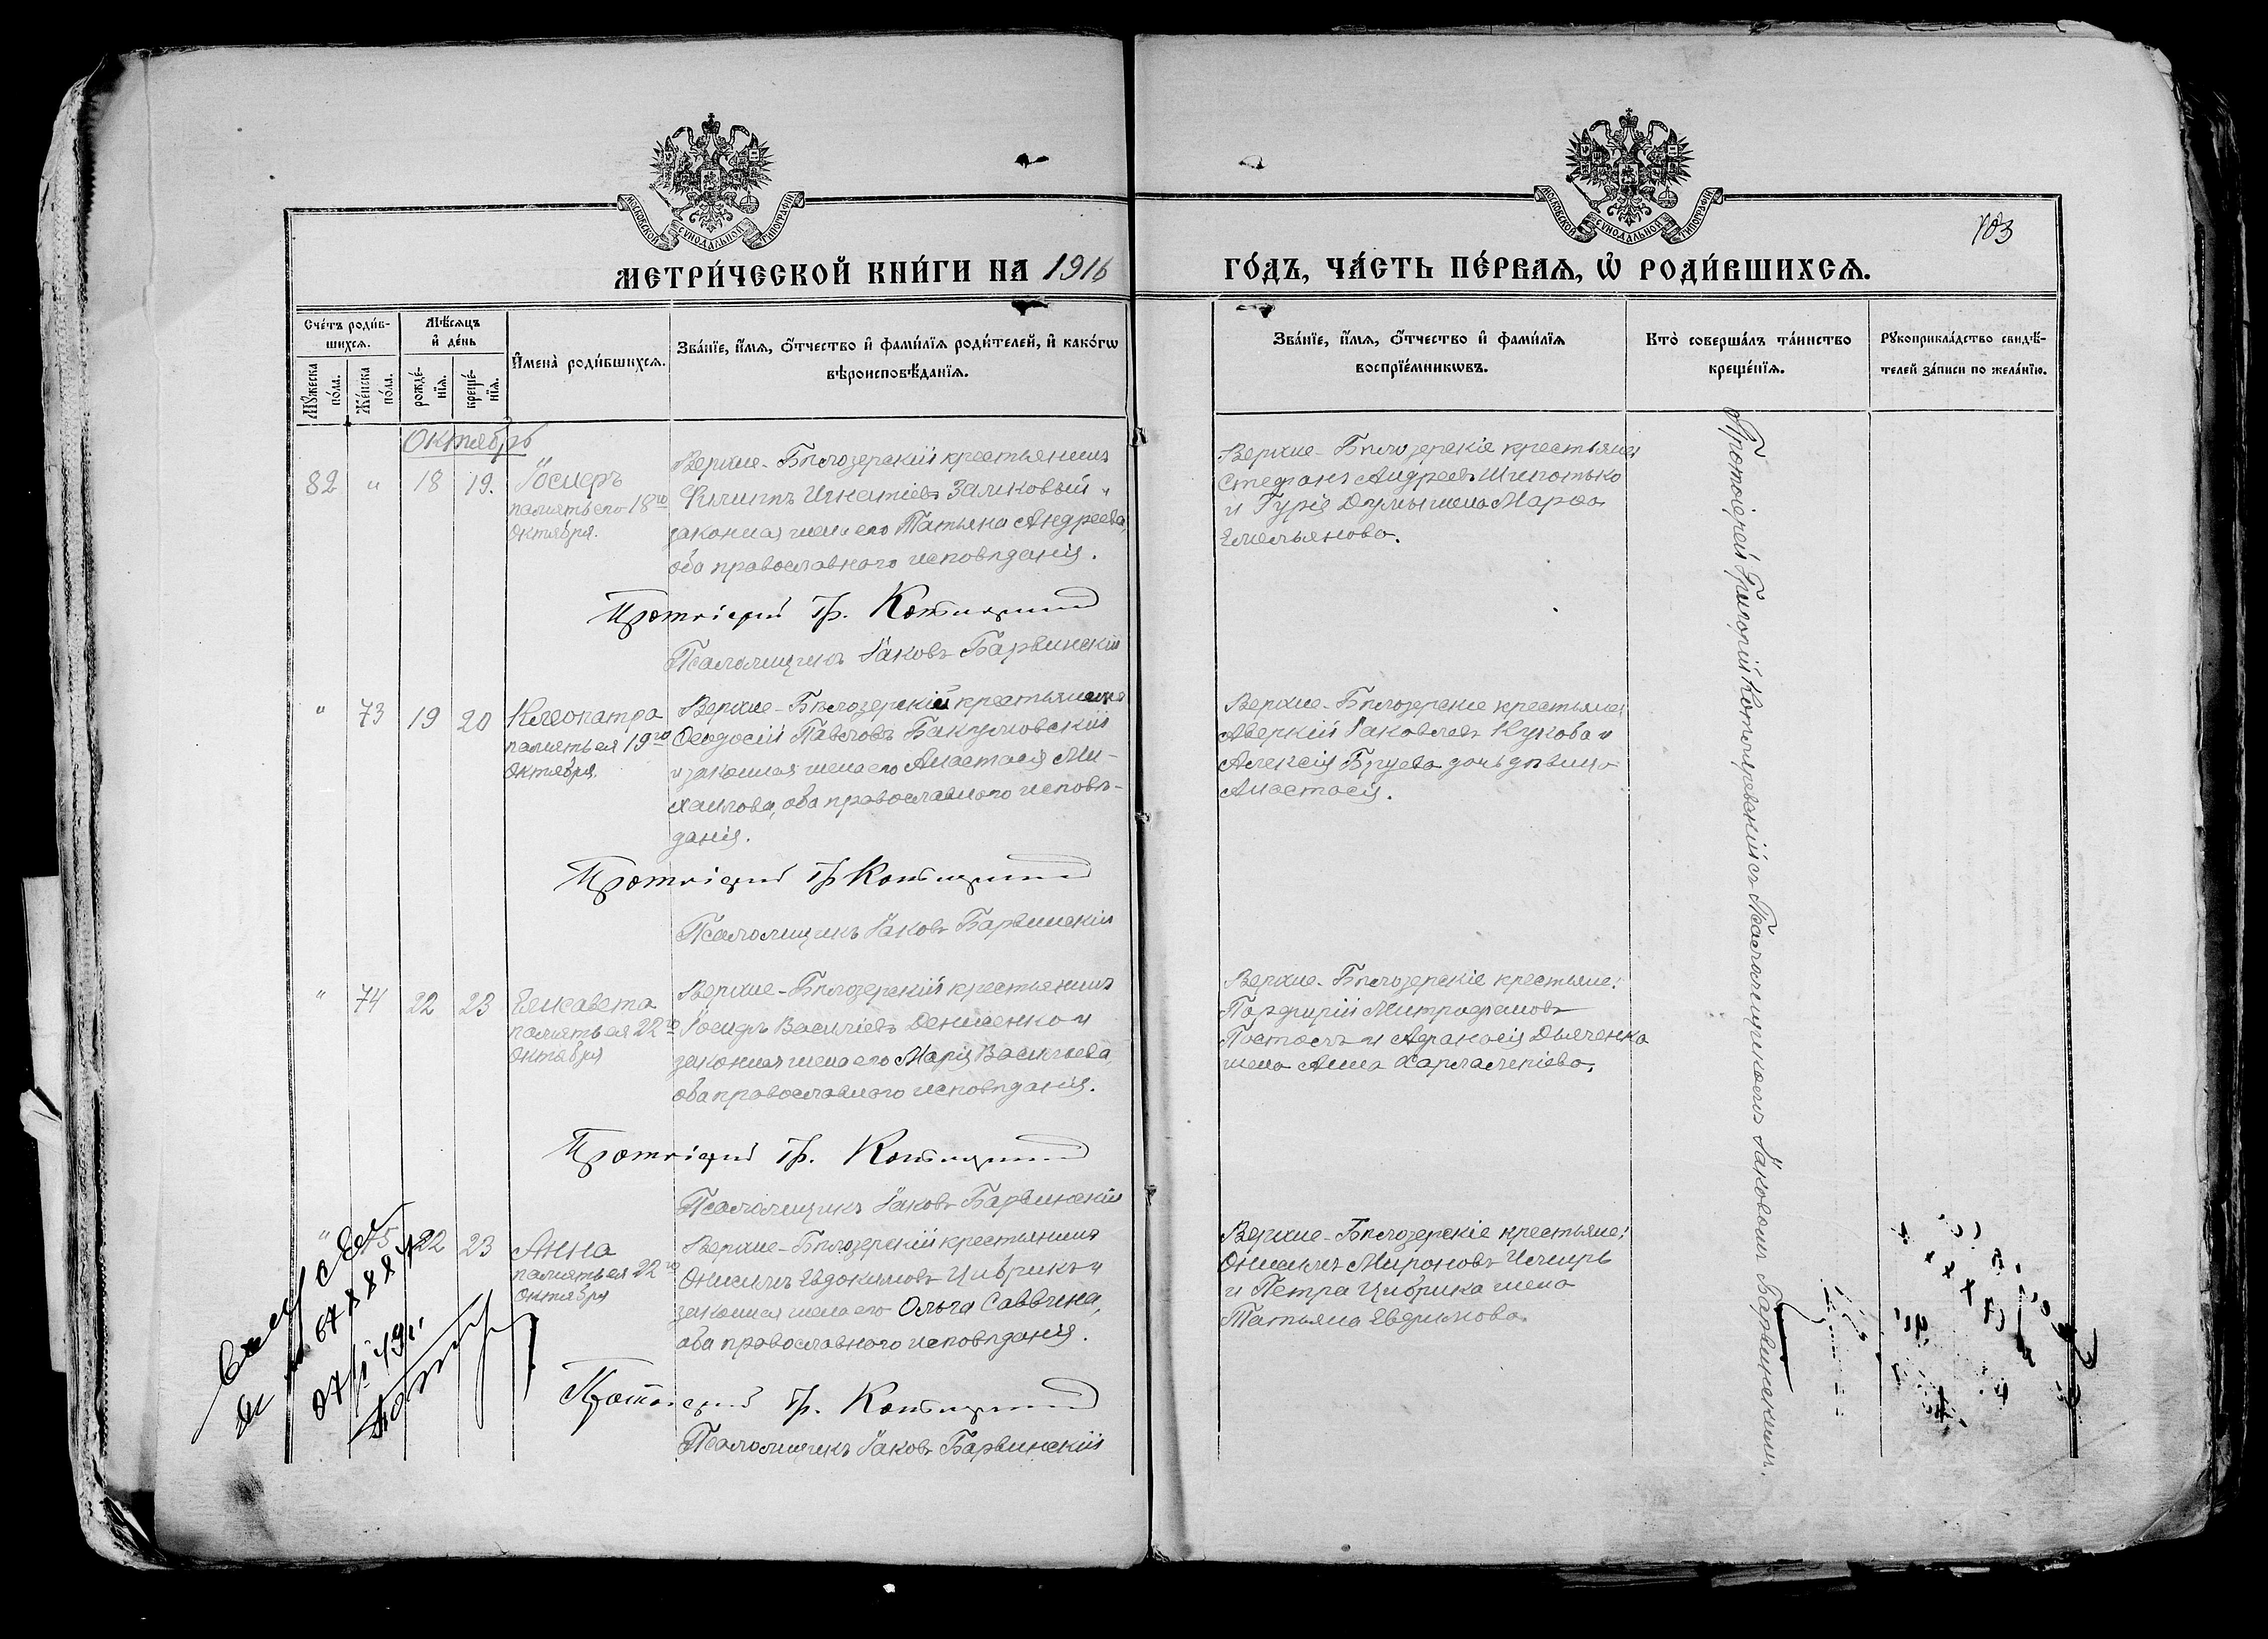 МОСКОВСКОЙ СѴНОДАЛЬНОЙ ТИПОГРАФІИ
МОСКОВСКОЙ СѴНОДАЛЬНОЙ ТИПОГРАФІИ
103
МЕТРИ́ЧЕСКОЙ КНИ́ГИ НА 1916
ГО́ДЪ, ЧА́СТЬ ПЕ́РВАѦ, Ѡ҆ РОДИ́ВШИХСѦ.
Сче́тъ роди́в-
шихсѧ.
Мꙋ́жеска по́ла.
Же́нска по́ла.
Мѣ́сѧцъ
и҆ де́нь
рожде́-
нїѧ.
креще́-
нїѧ.
И҆мена̀ роди́вшихсѧ.
Зва́нїе, и҆́мѧ, ѻ҆́тчество и҆ фами́лїѧ роди́телей, и҆ како́гѡ
вѣроисповѣ́данїѧ.
Зва́нїе, и҆́мѧ, ѻ҆́тчество и҆ фами́лїѧ
воспрїе́мникѡвъ.
Кто̀ соверша́лъ та́инство
креще́нїѧ.
Рꙋкоприкла́дство свидѣ́-
телей за́писи по жела́нїю.
Октябрь
82 " 18 19.
Іосифъ
память его 18го
Октября.
Верхне-Бѣлозерскій крестьянинъ
Филиппъ Игнатіевъ и
законная жена его Татьяна Андреева,
оба православнаго исповѣданія.
Протоіерей Гр. Котляревскій
Псаломщикъ Іаковъ Барвинскій
Верхне-Бѣлозерскіе крестьяне:
Стефанъ Андреевъ
и Гурія Думы жена Марѳа
Емельянова.
" 73 19 20
Клеопатра
память ея 19го
Октября.
Верхне-Бѣлозерскій крестьянинъ
Ѳеодосій Павловъ Бакумовскій
и законная жена его Анастасія Ми-
хаилова, оба православнаго исповѣ-
данія.
Протоіерей Гр. Котляревскій
Псаломщикъ Іаковъ Барвинскій
Верхне-Бѣлозерскіе крестьяне:
Аверкій Іаковлевъ Кукоба и
Алексія Бруева дочь дѣвица
Анастасія.
" 74 22 23
Елисавета
память ея 22го
Октября
Верхне-Бѣлозерскій крестьянинъ
Іосифъ Василіевъ Денисенко и
законная жена его Марія Васильева,
оба православнаго исповѣданія.
Протоіерей Гр. Котляревскій
Псаломщикъ Іаковъ Барвинскій
Верхне-Бѣлозерскіе крестьяне:
Порфирій Митрофановъ
и Аѳанасія Дьяченка
жена Анна Харлампіева.
" 75 22 23
Анна
память ея 22го
Октября
Верхне-Бѣлозерскій крестьянинъ
Онисимъ Евдокимовъ Цибрикъ и
законная жена его Ольга Саввина,
оба православнаго исповѣданія.
Протоіерей Гр. Котляревскій
Псаломщикъ Іаковъ Барвинскій
Верхне-Бѣлозерскіе крестьяне:
Онисимъ Мироновъ
и Петра Цибрика жена
Татьяна
Протоіерей Григорій Котляревскій съ Псаломщикомъ Іаковомъ Барвинскимъ.